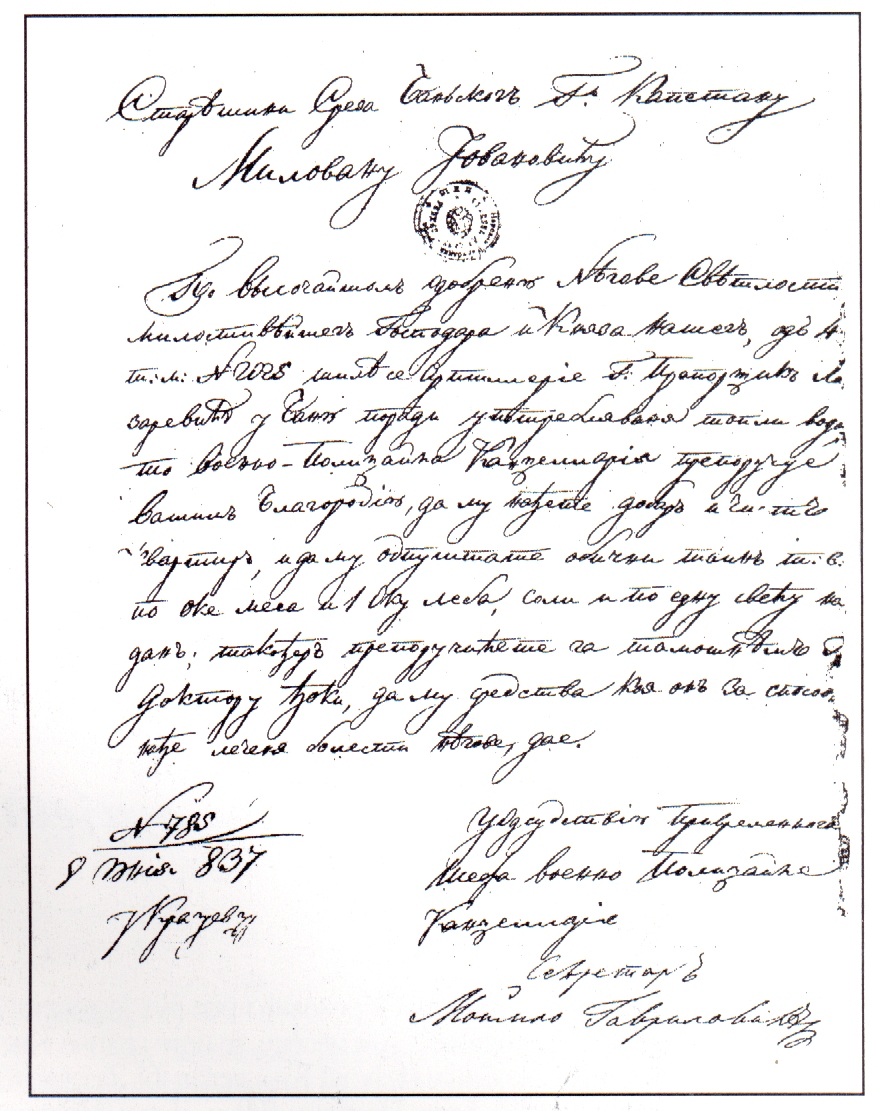 Старѣшини Среза Баньскогъ Гн. Капетану
Миловану Јовановићу
По высочайшемъ одобреню Нѣгове Свѣтлости
милостивѣйшегъ Господара и Княза нашегъ, одъ 4
т: м: № 2025 шилѣ се Артиллеріе Г. Прапорщикъ Ла
заревићъ у Баню поради употреблявања топли вода
то Военно-Полицайна Канцелларія препоручує
Вашемъ Благородію, да му нађете добаръ и чистъ
квартиръ, и да му одпуштате обични таинъ т: є:
по оке меса и 1 Оку леба, соли и по єдну свећу на
данъ; такођеръ препоручићете га тамошнѣмъ Г.
Доктору Ђоки, да му средства коя онъ за способ
нађе леченя болести нѣгове, дає.
№ 785
8 Юнія. 837
у Крагуевцу
У одсудствію Привременногъ
Шефа военно Полицайне
Канцелларіє
Секретаръ
Моіило Гавриловићъ